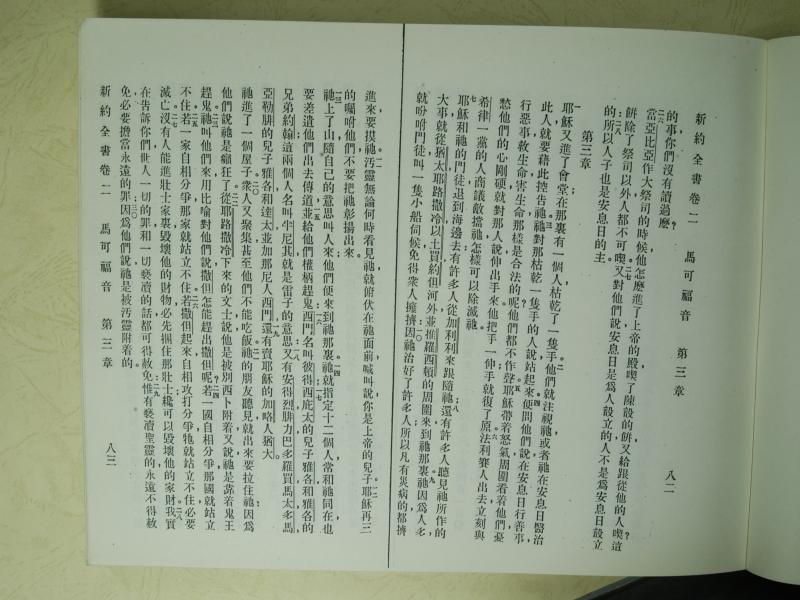 新約全書卷二　馬可福音　第三章　八二
的事你們沒有讀過麼？
二六當亞比亞作大祭司的時候他怎麼進上帝的殿喫了陳設的餅又給跟從他的人喫這
餅除了祭司以外人都不可喫二七又對他們說安息日是爲人設立的人不是爲安息日設立
的二八所以人子也是安息日的主。
第三章
一耶穌又進了會堂在那裏有一個人枯乾了一隻手二他們就注視祂或者祂在安息日醫治
此人就要藉此控告祂三祂對那枯乾一隻手的人說站起來四便問他們說在安息日行善事
行惡事救生命害生命那樣是合法的呢他們都不作聲五耶穌帶着怒氣周圍看着他們憂
愁他們的心剛硬就對那人說伸出手來他把手一伸手就復了原六法利賽人出去立刻與
希律一黨的人商議敵擋祂怎樣可以除滅祂
七耶穌和祂的門徒退到海邊去有許多人從加利利來跟隨祂八還有許多人聽見祂所作的
大事就從猶太耶路撒冷以土買約但河外並推羅西頓的周圍來到祂那裏九祂因爲人多
就吩咐門徒叫一隻小船伺候免得衆人擁擠一〇因祂治好了許多人所以凡有災病的都擠
進來要摸祂一一汚靈無論何時看見祂就俯伏在祂面前喊叫說你是上帝的兒子一二耶穌再三
的囑咐他們不要把祂彰揚出來。
一三祂上了山隨自己的意思叫人來他們便來到祂那裏一四祂就指定十二個人常和祂同在也
要差遣他們出去傳道一五並給他們權柄趕鬼一六西門名叫彼得一七西庇太的兒子雅各和雅各的
兄弟約翰這兩個人名叫半尼其就是雷子的意思一八又有安得烈腓力巴多羅買馬太多馬
亞勒腓的兒子雅各和達太並加那尼人西門一九還有賣耶穌的加略人猶大
祂進了一個屋子二〇衆人又聚集甚至他們不能吃飯二一祂的朋友聽見就出來要拉住祂因爲
他們說祂是癲狂了二二從耶路撒冷下來的文士說他是被別西卜附着又說祂是靠着鬼王
趕鬼二三祂叫他們來用比喻對他們說撒但怎能趕出撒但呢二四若一國自相分爭那國就站立
不住二五若一家自相分爭那家就站立不住二六若撒但起來自相攻打分爭牠就站立不住必要
滅亡二七沒有人能進壯士家裏毀壞他的財物必先捆住那壯士纔可以毀壞他的家財二八我實
在告訴你們世人一切的罪和一切褻瀆的話都可得赦免二九惟有褻瀆聖靈的永遠不得赦
免必要擔當永遠的罪三〇因爲他們說祂是被汚靈附着的。
新約全書卷二　馬可福音　第三章　八三